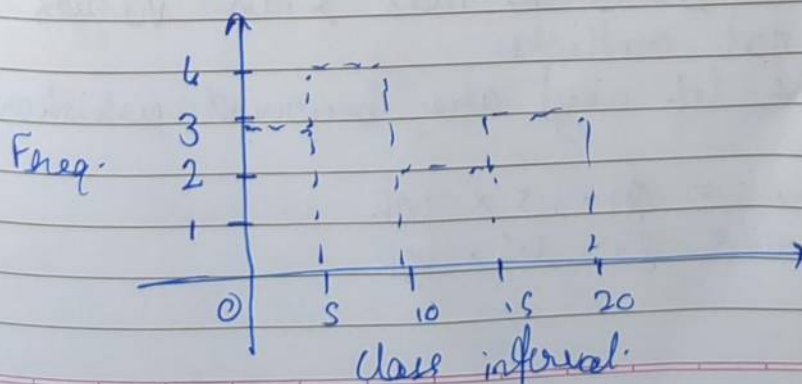 4
3
Freq.
2
1
0 5 10 15 20
Class interval.